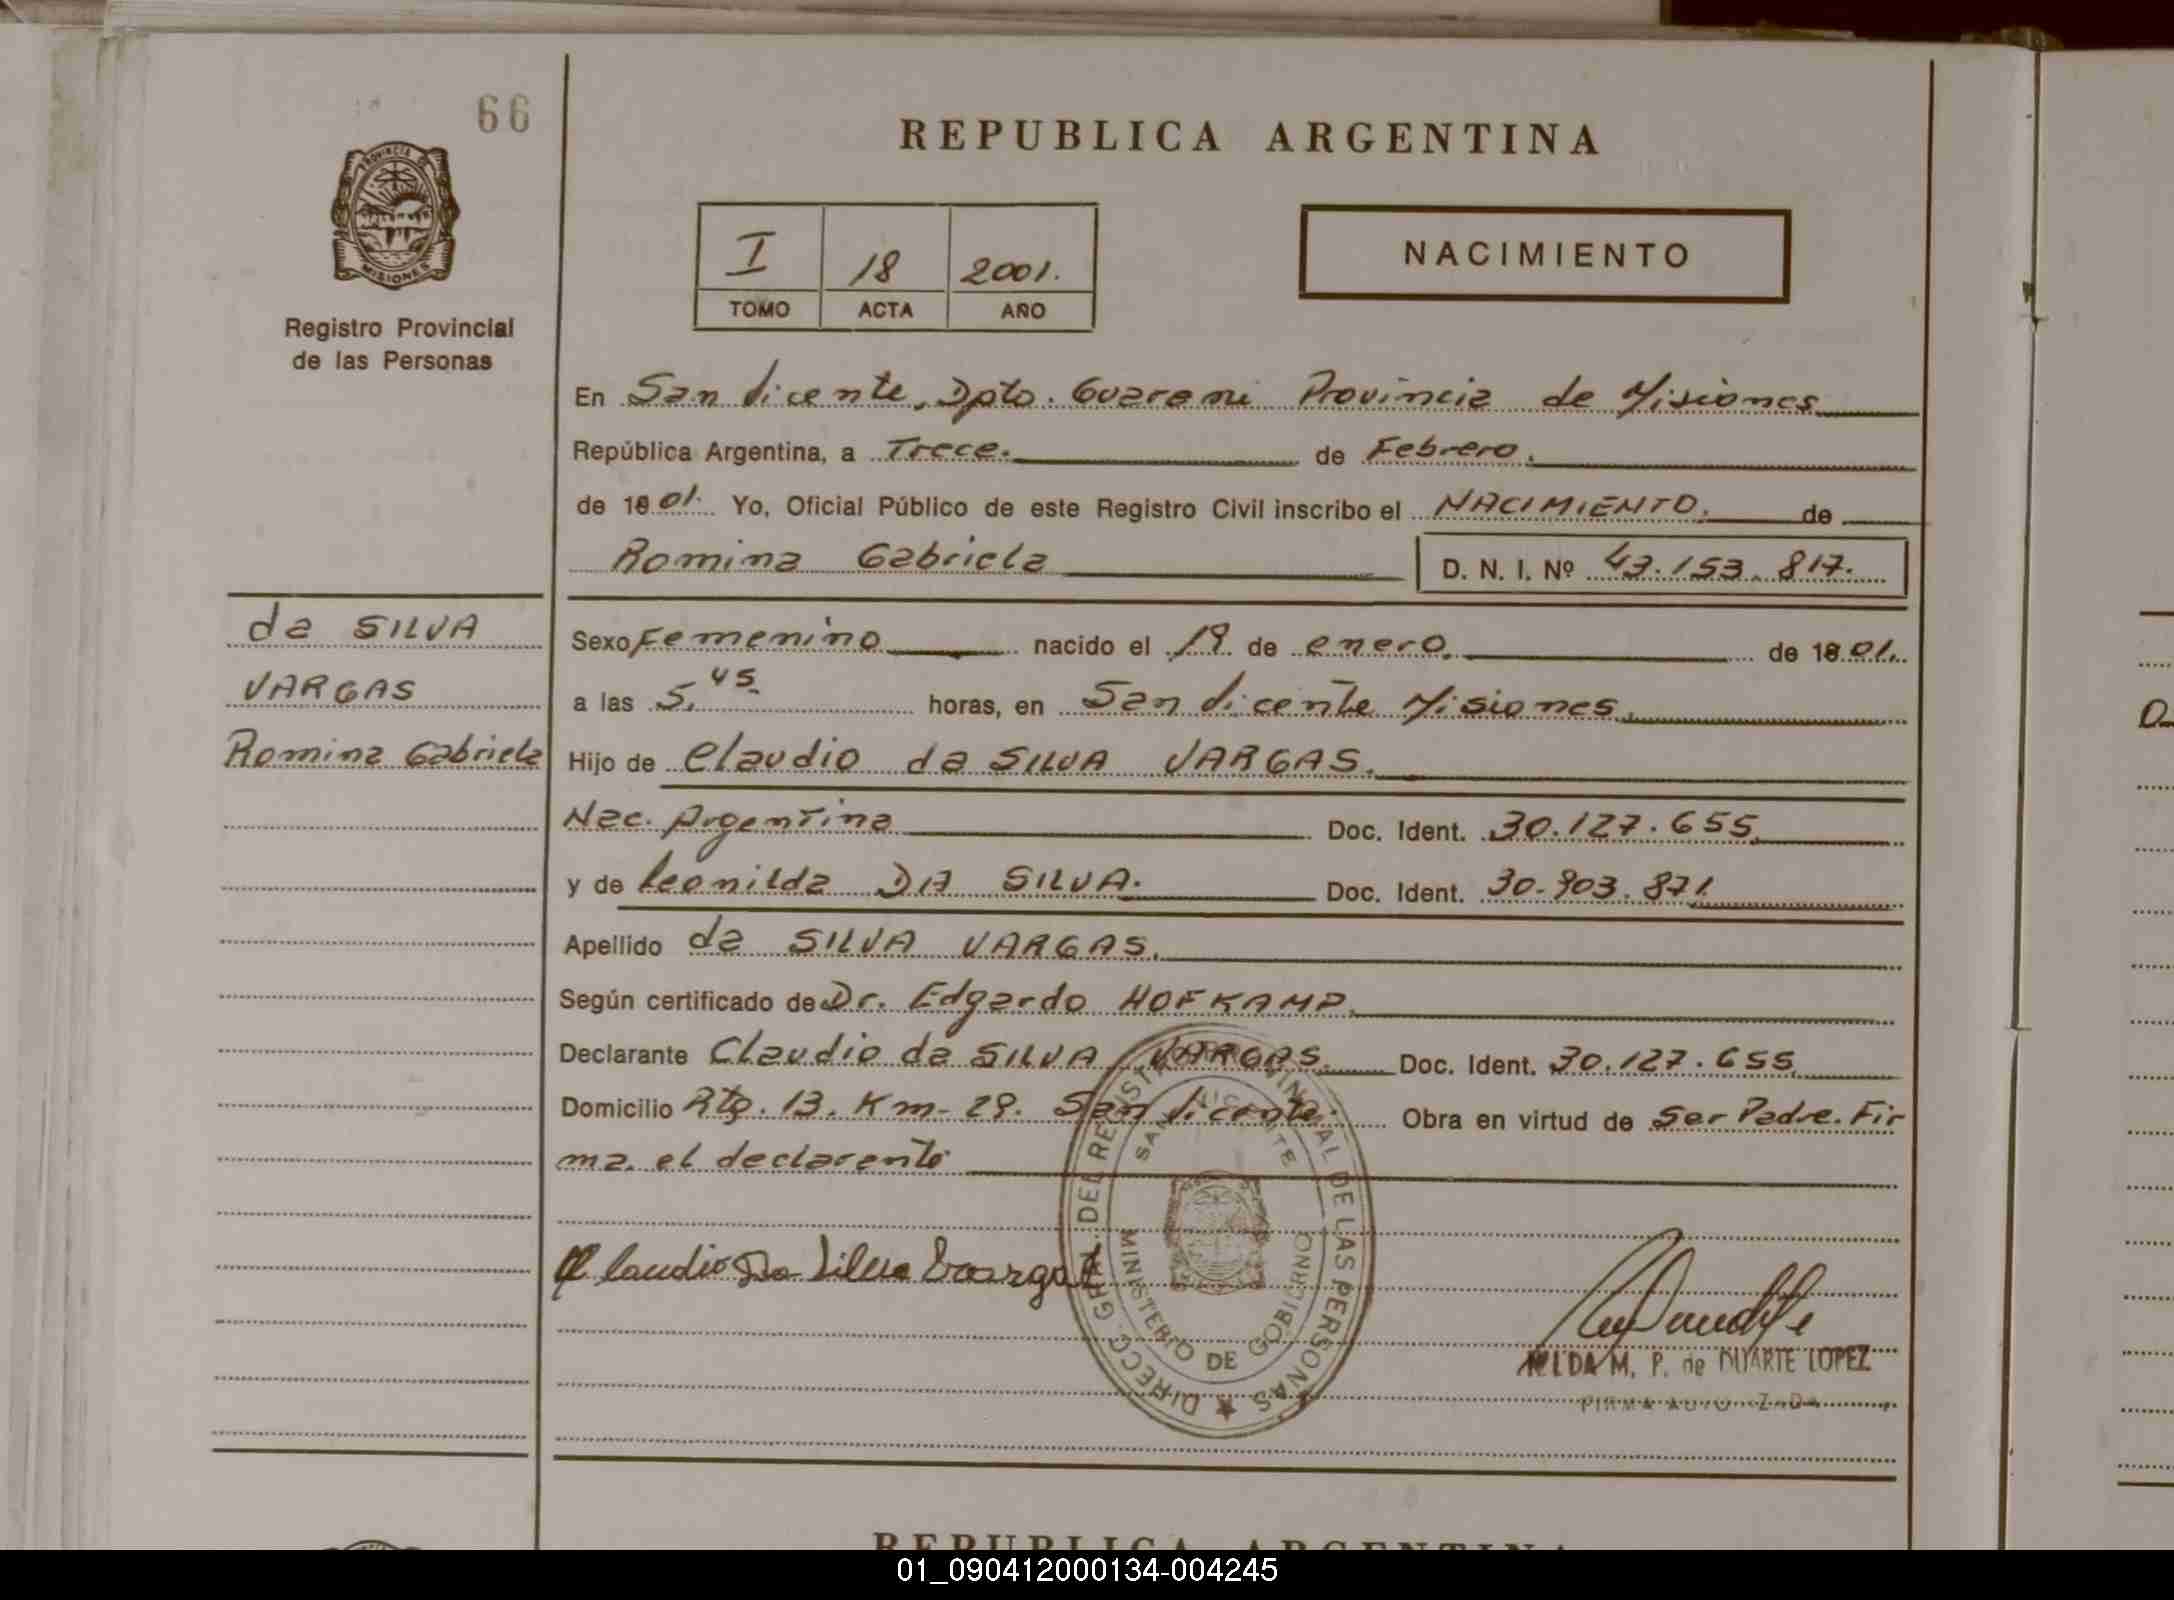 66
REPUBLICA ARGENTINA
PROVINCIA DE
MISIONES
Registro Provincial
de las Personas
I 18 2001.
TOMO ACTA AÑO
NACIMIENTO
En San Vicente, Dpto. Guarani Provincia de Misiones
República Argentina, a Trece. de Febrero.
de 19 01. Yo, Oficial Público de este Registro Civil inscribo el NACIMIENTO. de
Romina Gabriela D. N. I. Nº 43.153.817.
da SILVA
VARGAS
Romina Gabriela
Sexo Femenino nacido el 19 de enero. de 19 01.
a las 5,45 horas, en San Vicente Misiones.
Hijo de Claudio da SILVA VARGAS.
Nac. Argentina Doc. Ident. 30.127.655
y de Leonilda DA SILVA. Doc. Ident. 30.903.871
Apellido da SILVA VARGAS.
Según certificado de Dr. Edgardo HOFKAMP.
Declarante Claudio da SILVA VARGAS. Doc. Ident. 30.127.655
Domicilio Rta. 13. Km. 29. San Vicente. Obra en virtud de Ser Padre. Fir
ma. el declarante
Claudio Da Silva Vargas
DIRECC. GRAL. DEL REGISTRO PROVINCIAL DE LAS PERSONAS
SAN VICENTE
MINISTERIO DE GOBIERNO
M. P. de DUARTE LOPEZ
FIRMA AUTORIZADA
REPUBLICA ARGENTINA
01_090412000134-004245